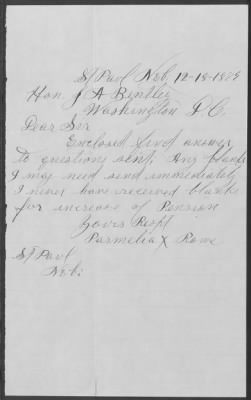 St Paul Neb, 12-18-1878
Hon. J A Bentley
Washington D C.
Dear Sir
Enclosed find answer
to questions sent, Any blanks
I may need send immediately
I never have received blanks
for increase of Pension
Yours Respt
Parmelia X Rowe
St Paul
Neb.